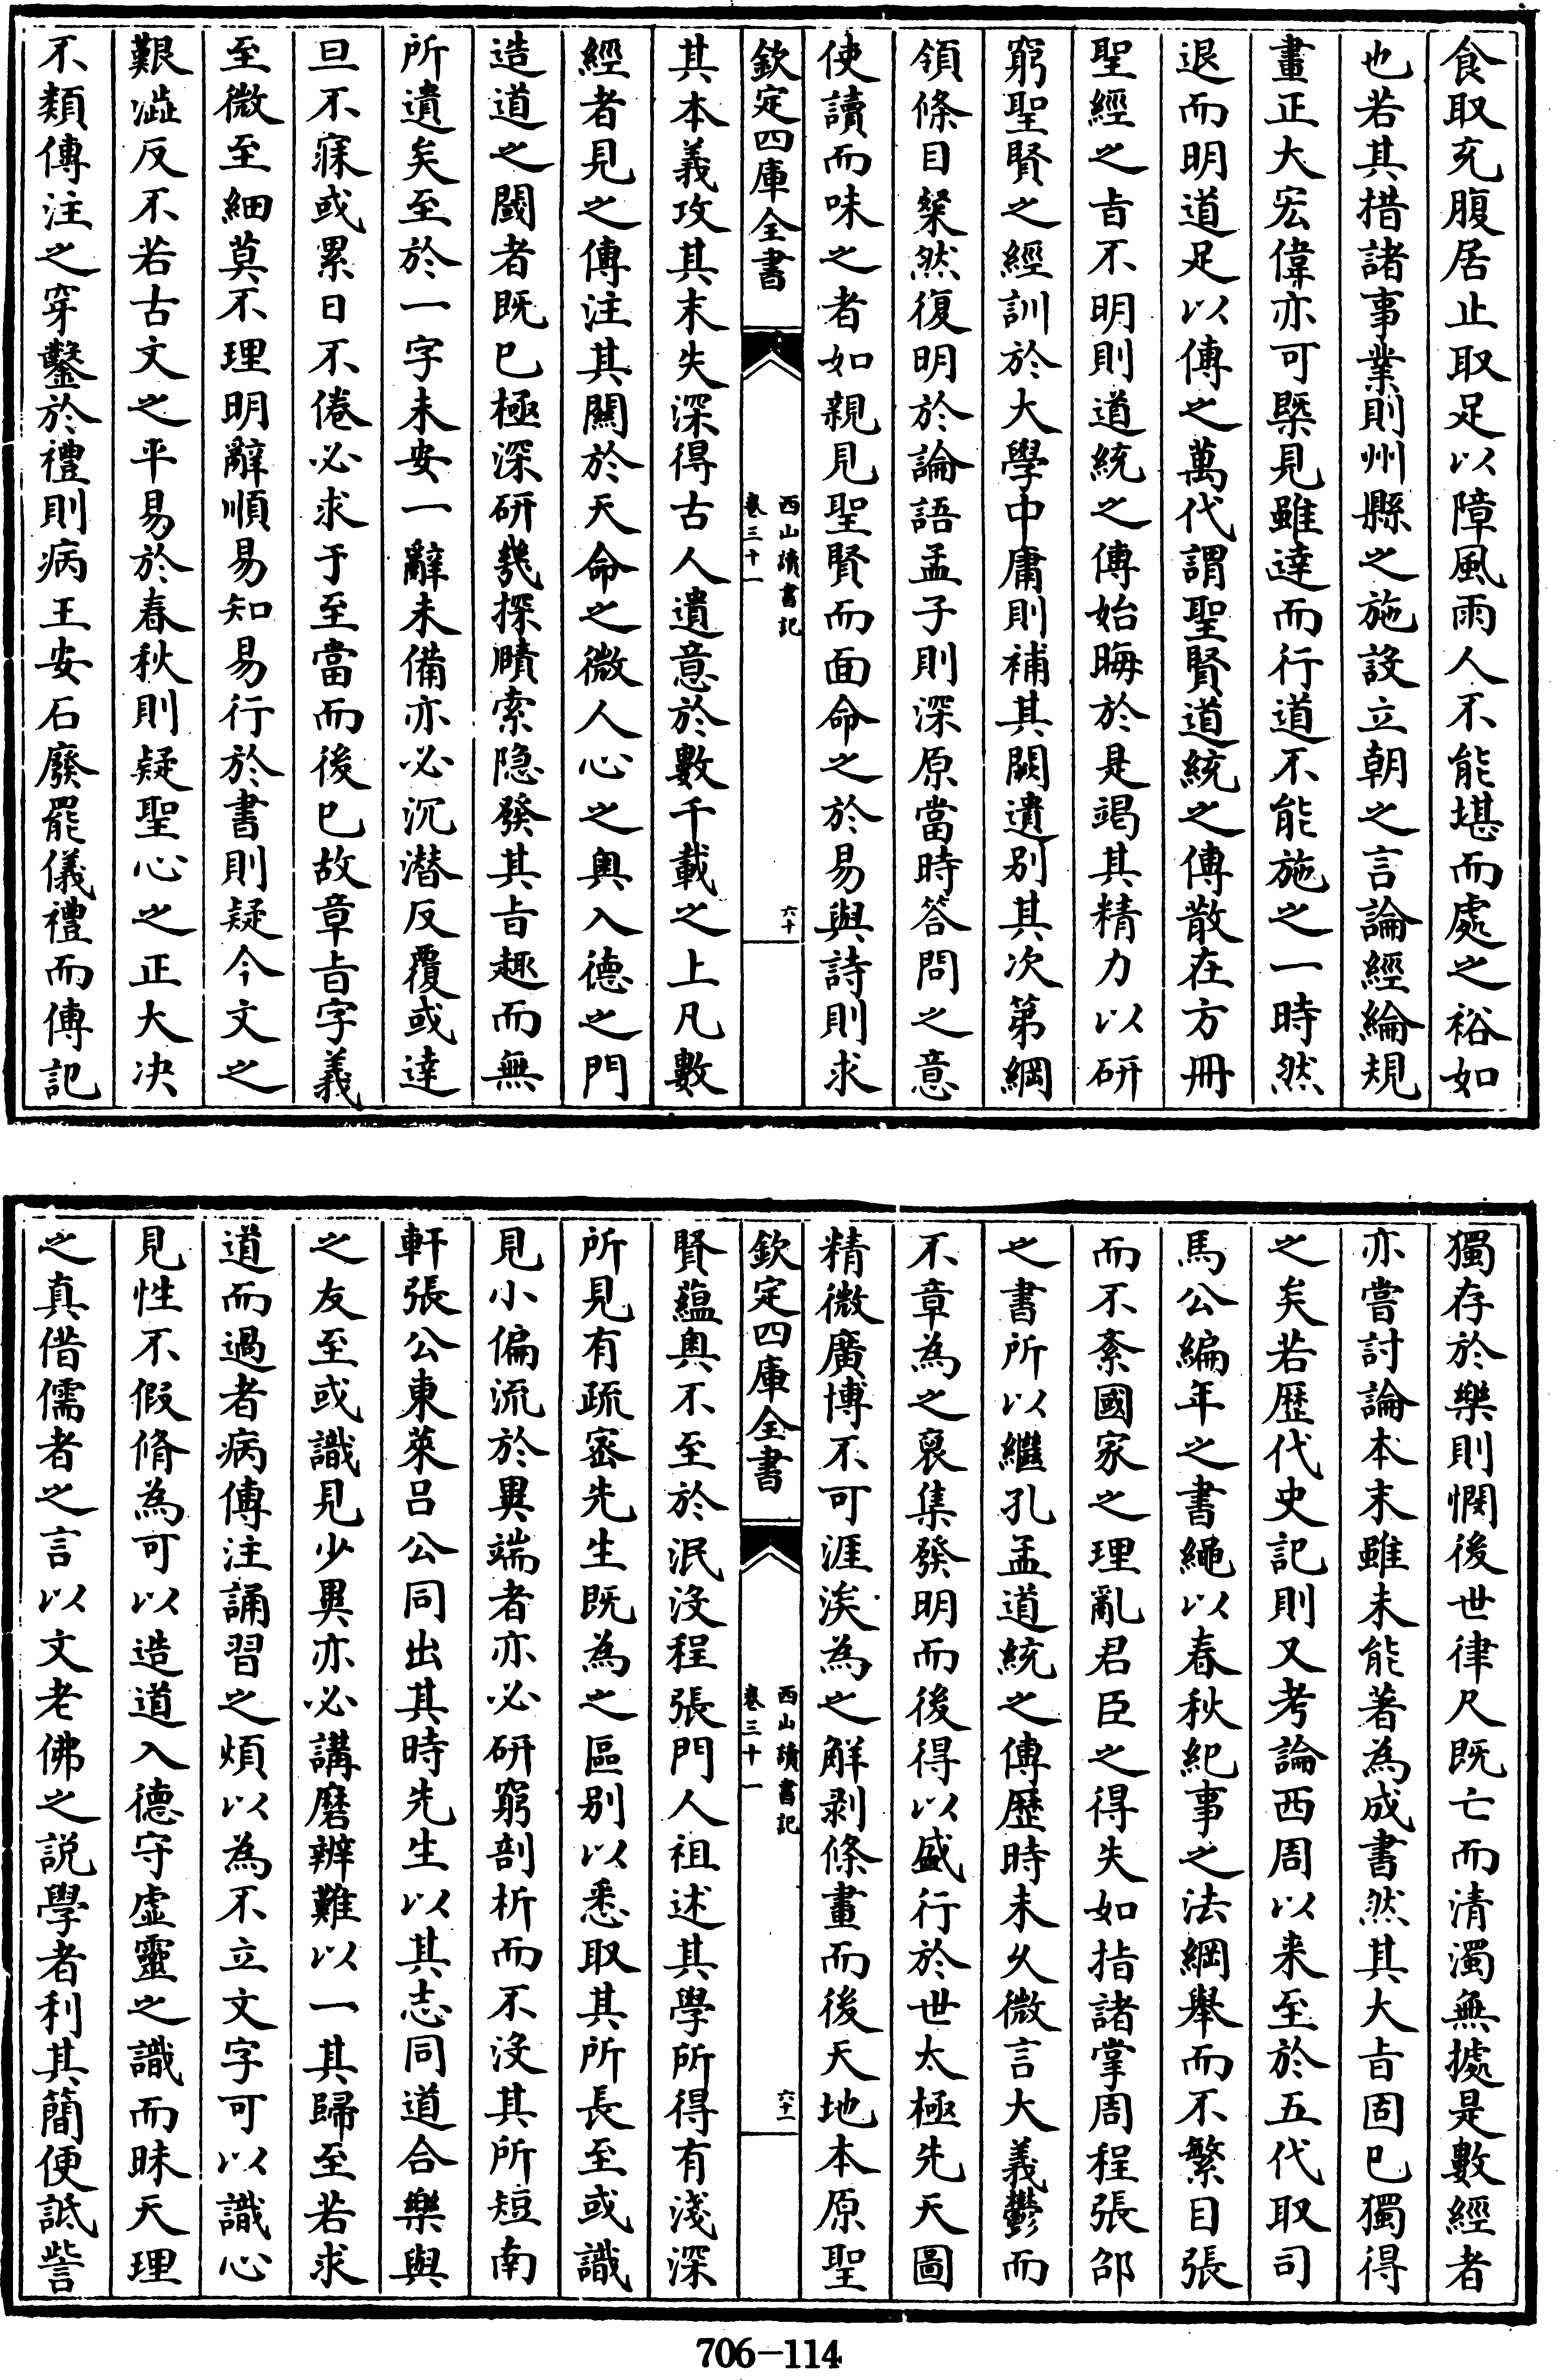 食取充腹居止取足以障風雨人不能堪而處之裕如
也若其措諸事業則州縣之施設立朝之言論經綸規
畫正大宏偉亦可槩見雖達而行道不能施之一時然
退而明道足以傳之萬代謂聖賢道統之傳散在方冊
聖經之旨不明則道統之傳始晦於是竭其精力以研
窮聖賢之經訓於大學中庸則補其闕遺别其次第綱
領條目粲然復明於論語孟子則深原當時答問之意
使讀而味之者如親見聖賢而面命之於易與詩則求
欽定四庫全書
西山讀書記
卷三十一
六十
其本義攻其末失深得古人遺意於數千載之上凡數
經者見之傳注其關於天命之微人心之奥入德之門
造道之閾者既已極深研幾探賾索隐發其旨趣而無
所遺矣至於一字未安一辭未備亦必沉潜反覆或達
旦不寐或累日不倦必求于至當而後已故章旨字義
至微至細莫不理明辭順易知易行於書則疑今文之
艱澁反不若古文之平易於春秋則疑聖心之正大决
不類傳注之穿鑿於禮則病王安石廢罷儀禮而傳記
獨存於樂則憫後世律尺既亡而清濁無據是數經者
亦嘗討論本末雖未能著為成書然其大旨固已獨得
之矣若歴代史記則又考論西周以来至於五代取司
馬公編年之書繩以春秋紀事之法綱舉而不繁目張
而不紊國家之理亂君臣之得失如指諸掌周程張邵
之書所以繼孔孟道統之傳歴時未久微言大義鬱而
不章為之裒集發明而後得以盛行於世太極先天圖
精微廣博不可涯涘為之解剥條畫而後天地本原聖
欽定四庫全書
西山讀書記
卷三十一
六十一
賢蘊奥不至於泯沒程張門人祖述其學所得有淺深
所見有疏宻先生既為之區别以悉取其所長至或識
見小偏流於異端者亦必研窮剖析而不沒其所短南
軒張公東萊吕公同出其時先生以其志同道合樂與
之友至或識見少異亦必講磨辨難以一其歸至若求
道而過者病傳注誦習之煩以為不立文字可以識心
見性不假脩為可以造道入德守虚靈之識而昧天理
之真借儒者之言以文老佛之説學者利其簡便詆訾
706-114